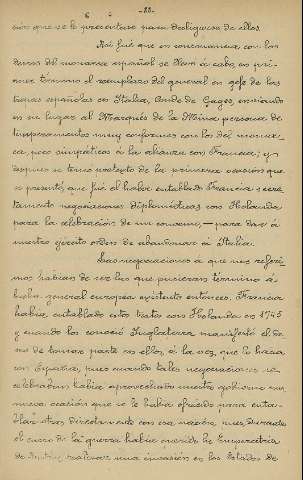 - 88 -
sión que se le presentase para desligarse de ellos.
Así fué que en consonancia con los
deseos del monarca español se llevó á cabo en pri-
mer término el reemplazo del general en gefe de las
tropas españolas en Italia, Conde de Gages, enviando
en su lugar al Marqués de la Mina persona de
temperamentos muy conformes con los del monar-
ca, poco simpáticos á la alianza con Francia; y
después se tomó pretexto de la primera ocasión que
se presentó, que fué el haber entablado Francia secre-
tamente negociaciones diplomáticas con Holanda
para la celebración de un convenio, — para dar á
nuestro ejército orden de abandonar á Italia.
Las negociaciones á que nos referi-
mos habían de ser las que pusieran término á
la general europea existente entonces. Francia
había entablado estos tratos con Holanda en 1745
y cuando los conoció Inglaterra manifestó el de-
seo de tomar parte en ellos, á la vez que lo hacía
con España, pues cuando tales negociaciones se
celebraban había aprovechado nuestro gobierno una
nueva ocasión que se le había ofrecido para enta-
blar otras directamente con esa nación, pues durante
el curso de la guerra había querido la Emperatriz
de realizar una invasión en los Estados de